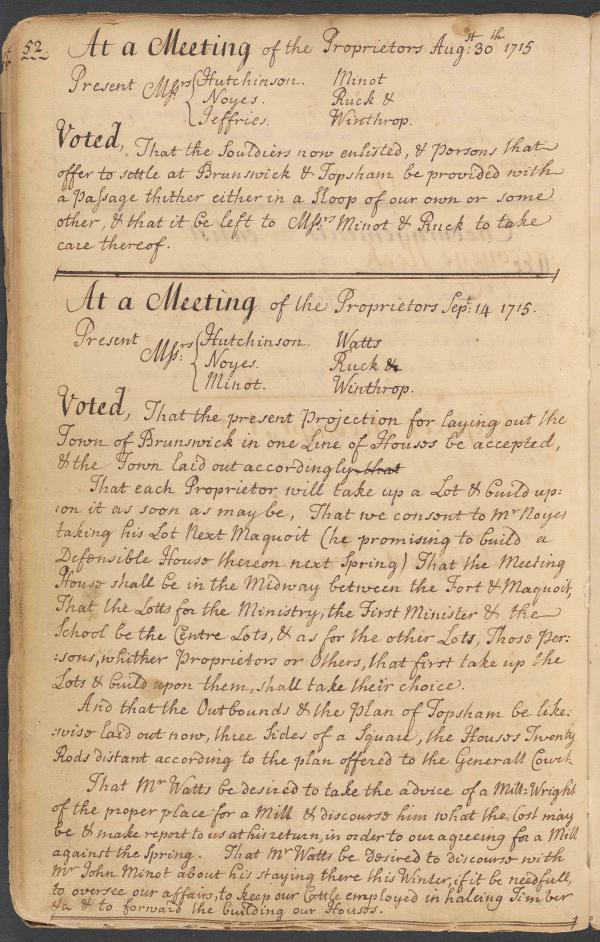 52.
At a Meeting of the Proprietors Aug:st 30th 1715
Present Mssrs: { Hutchinson. Minot
Noyes. Ruck &
Jeffries. Winthrop.
Voted, That the Souldiers now enlisted, & persons that
offer to settle at Brunswick & Topsham be provided with
a Passage thither either in a Sloop of our own or some
other, & that it be left to Mssrs: Minot & Ruck to take
care thereof.
At a Meeting of the Proprietors Sept: 14 1715.
Present Mssrs: { Hutchinson. Watts
Noyes. Ruck &
Minot. Winthrop.
Voted, That the present Projection for laying out the
Town of Brunswick in one Line of Houses be accepted,
& the Town laid out accordingly that
That each Proprietor will take up a Lot & build up=
:on it as soon as may be, That we consent to Mr Noyes
taking his Lot Next Maquoit (he promising to build a
Defensible House thereon next Spring) That the Meeting
House shall be in the Midway between the Fort & Maquoit,
That the Lotts for the Ministry, the First Minister & the
School be the Centre Lots, & as for the other Lots, Those Per=
:sons, whither Proprietors or Others, that first take up the
Lots & build upon them, shall take their choice.
And that the Outbounds & the Plan of Topsham be like:
:wise laid out now, three Sides of a Square, the Houses Twenty
Rods distant according to the plan offered to the Generall Court.
That Mr Watts be desired to take the advice of a Mill=Wright
of the proper place for a Mill & discourse him what the Cost may
be & make report to us at his return, in order to our agreeing for a Mill
against the Spring. That Mr Watts be Desired to discourse with
Mr John Minot about his staying there this Winter, if it be needfull,
to oversee our affairs, to keep our Cattle employed in haleing Timber
&c & to forward the building our Houses.